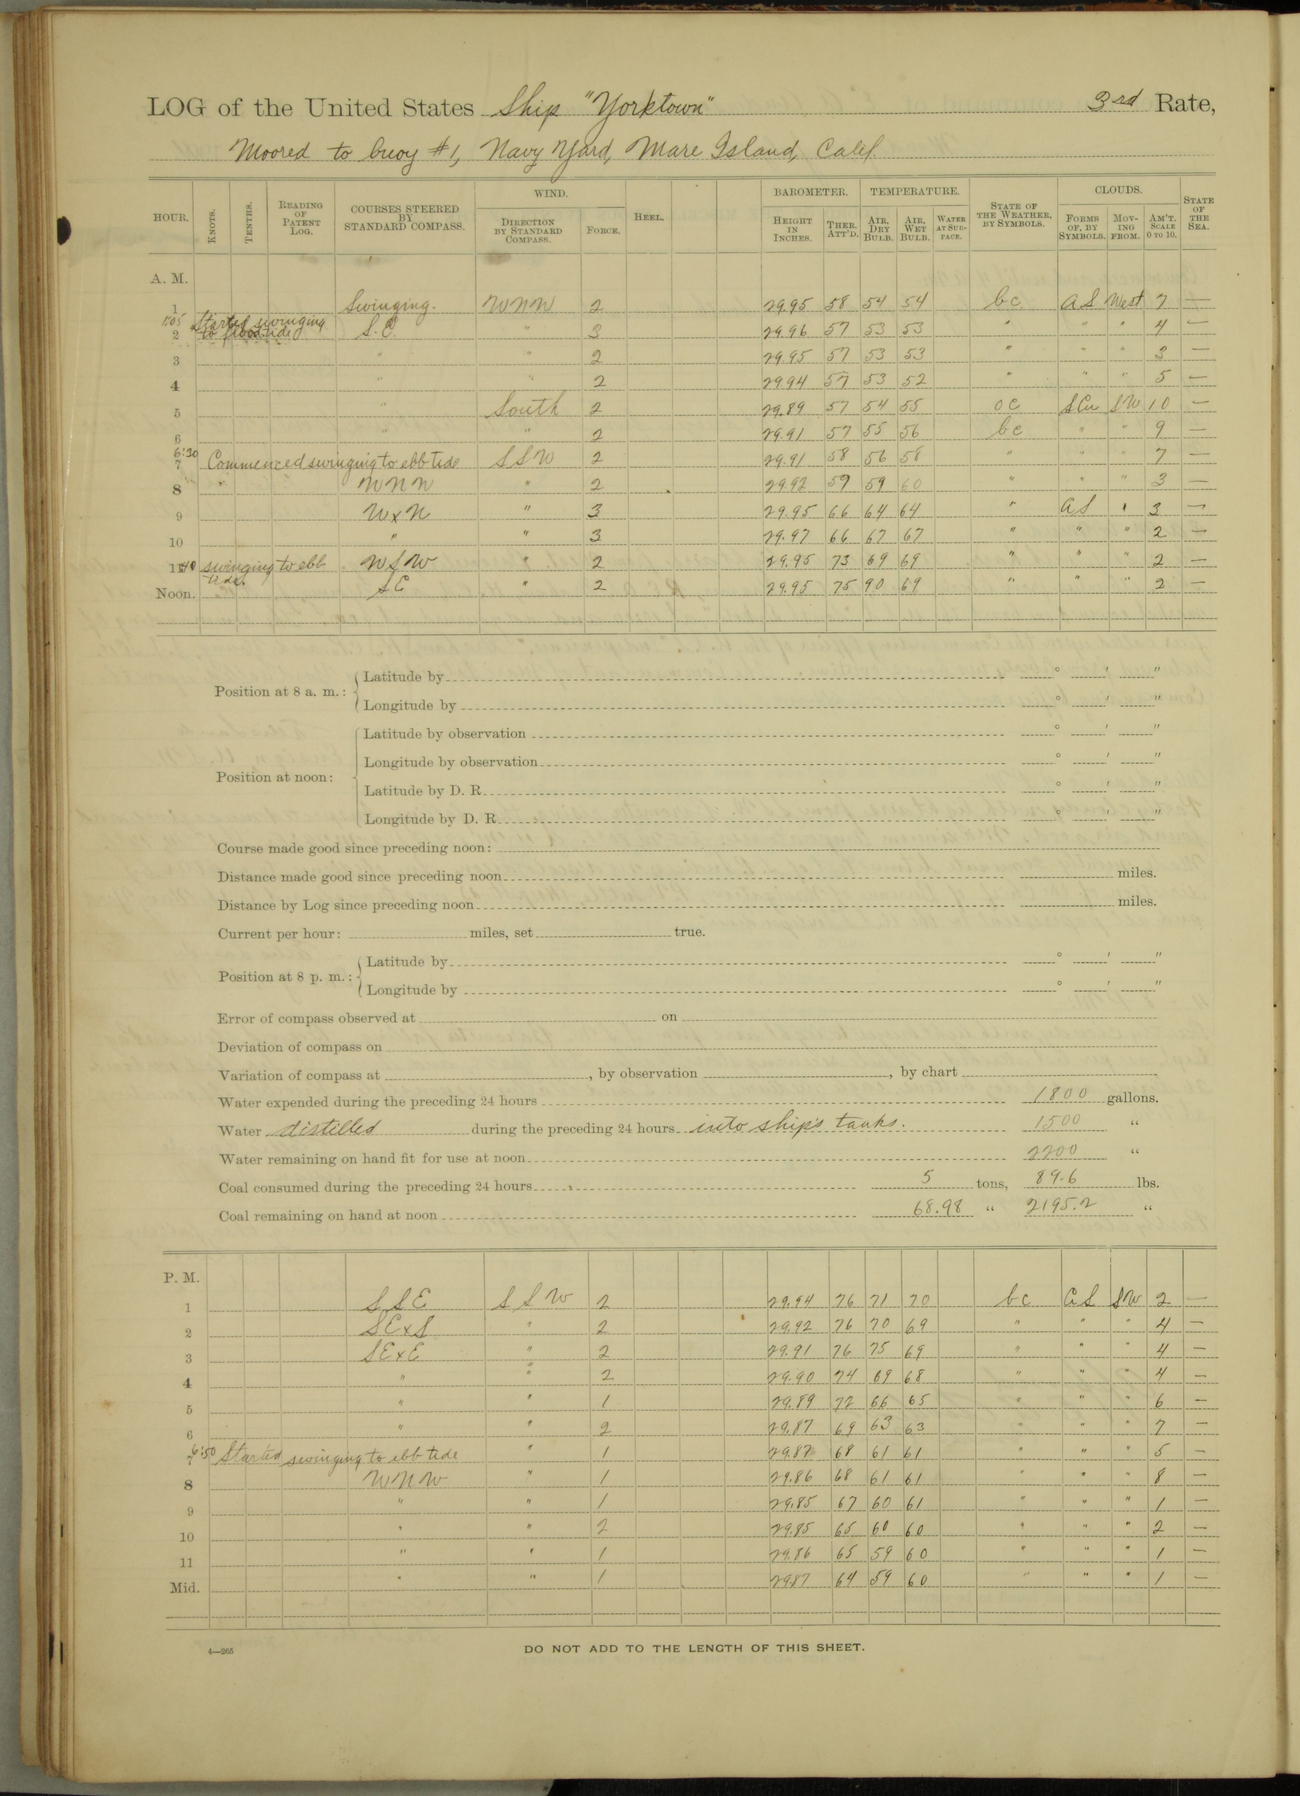 LOG of the United States Ship "Yorktown" 3rd Rate,
Moored to buoy #1, Navy Yard, Mare Island, Calif.
HOUR. KNOTS. TENTHS. READING OF PATENT LOG. COURSES STEERED BY STANDARD COMPASS. WIND. DIRECTION BY STANDARD COMPASS. FORCE. HEEL. BAROMETER. HEIGHT IN INCHES. THER. ATT'D. TEMPERATURE. AIR, DRY BULB. AIR, WET BULB. WATER AT SURFACE. STATE OF THE WEATHER, BY SYMBOLS. CLOUDS. FORMS OF, BY SYMBOLS. MOVING FROM. AM'T. SCALE 0 TO 10. STATE OF THE SEA.
A. M.
1 Swinging. WNW 2 29.95 58 54 54 bc AS West 7 —
1:05 Started swinging to flood tide
2 S.E. " 3 29.96 57 53 53 " " " 4 —
3 " " 2 29.95 57 53 53 " " " 3 —
4 " " 2 29.94 57 53 52 " " " 5 —
5 " South 2 29.89 57 54 55 oc SCu SW 10 —
6 " " 2 29.91 57 55 56 bc " " 9 —
6:30
7 Commenced swinging to ebb tide SSW 2 29.91 58 56 58 " " " 7 —
8 " WNW " 2 29.92 59 59 60 " " " 3 —
9 WxN " 3 29.95 66 64 64 " AS " 3 —
10 " " 3 29.97 66 67 67 " " " 2 —
11 40 swinging to ebb tide. WSW " 2 29.95 73 69 69 " " " 2 —
Noon. SE " 2 29.95 75 90 69 " " " 2 —
Position at 8 a. m.: Latitude by ° ' "
Longitude by ° ' "
Position at noon: Latitude by observation ° ' "
Longitude by observation ° ' "
Latitude by D. R. ° ' "
Longitude by D. R. ° ' "
Course made good since preceding noon:
Distance made good since preceding noon miles.
Distance by Log since preceding noon miles.
Current per hour: miles, set true.
Position at 8 p. m.: Latitude by ° ' "
Longitude by ° ' "
Error of compass observed at on
Deviation of compass on
Variation of compass at , by observation , by chart
Water expended during the preceding 24 hours 1800 gallons.
Water distilled during the preceding 24 hours into ship's tanks. 1500 "
Water remaining on hand fit for use at noon 2200 "
Coal consumed during the preceding 24 hours 5 tons, 89.6 lbs.
Coal remaining on hand at noon 68.98 " 2195.2 "
P. M.
1 SSE SSW 2 29.94 76 71 70 bc AS SW 2 —
2 SExS " 2 29.92 76 70 69 " " " 4 —
3 SExE " 2 29.91 76 75 69 " " " 4 —
4 " " 2 29.90 74 69 68 " " " 4 —
5 " " 1 29.89 72 66 65 " " " 6 —
6 " " 2 29.87 69 63 63 " " " 7 —
6:50
7 Started swinging to ebb tide " 1 29.87 68 61 61 " " " 5 —
8 WNW " 1 29.86 68 61 61 " " " 8 —
9 " " 1 29.85 67 60 61 " " " 1 —
10 " " 2 29.85 65 60 60 " " " 2 —
11 " " 1 29.86 65 59 60 " " " 1 —
Mid. " " 1 29.87 64 59 60 " " " 1 —
4—265 DO NOT ADD TO THE LENGTH OF THIS SHEET.